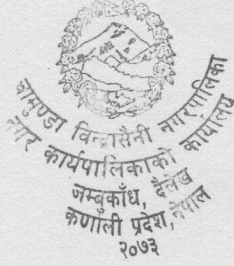 चामुण्डा विन्द्रासैनी नगरपालिका
नगर कार्यपालिकाको कार्यालय
जम्बुकाँध, दैलेख
कर्णाली प्रदेश, नेपाल
२०७३